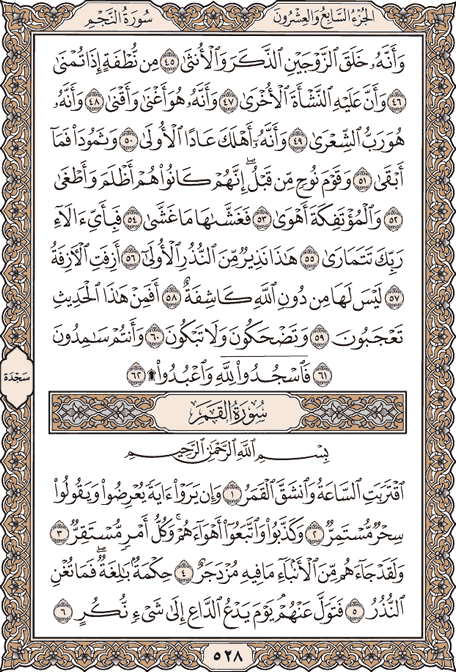 سُورَةُ النَّجْمِ الجُزْءُ السَّابِعُ وَالعِشْرُونَ
وَأَنَّهُۥ خَلَقَ ٱلزَّوْجَيْنِ ٱلذَّكَرَ وَٱلْأُنثَىٰ ٤٥ مِن نُّطْفَةٍ إِذَا تُمْنَىٰ
٤٦ وَأَنَّ عَلَيْهِ ٱلنَّشْأَةَ ٱلْأُخْرَىٰ ٤٧ وَأَنَّهُۥ هُوَ أَغْنَىٰ وَأَقْنَىٰ ٤٨ وَأَنَّهُۥ
هُوَ رَبُّ ٱلشِّعْرَىٰ ٤٩ وَأَنَّهُۥٓ أَهْلَكَ عَادًا ٱلْأُولَىٰ ٥٠ وَثَمُودَا۟ فَمَآ
أَبْقَىٰ ٥١ وَقَوْمَ نُوحٍ مِّن قَبْلُ ۖ إِنَّهُمْ كَانُوا۟ هُمْ أَظْلَمَ وَأَطْغَىٰ
٥٢ وَٱلْمُؤْتَفِكَةَ أَهْوَىٰ ٥٣ فَغَشَّىٰهَا مَا غَشَّىٰ ٥٤ فَبِأَىِّ ءَالَآءِ
رَبِّكَ تَتَمَارَىٰ ٥٥ هَٰذَا نَذِيرٌ مِّنَ ٱلنُّذُرِ ٱلْأُولَىٰٓ ٥٦ أَزِفَتِ ٱلْءَازِفَةُ
٥٧ لَيْسَ لَهَا مِن دُونِ ٱللَّهِ كَاشِفَةٌ ٥٨ أَفَمِنْ هَٰذَا ٱلْحَدِيثِ
تَعْجَبُونَ ٥٩ وَتَضْحَكُونَ وَلَا تَبْكُونَ ٦٠ وَأَنتُمْ سَٰمِدُونَ
٦١ فَٱسْجُدُوا۟ لِلَّهِ وَٱعْبُدُوا۟ ۩ ٦٢
سَجْدَة
سُورَةُ القَمَرِ
بِسْمِ ٱللَّهِ ٱلرَّحْمَٰنِ ٱلرَّحِيمِ
ٱقْتَرَبَتِ ٱلسَّاعَةُ وَٱنشَقَّ ٱلْقَمَرُ ١ وَإِن يَرَوْا۟ ءَايَةً يُعْرِضُوا۟ وَيَقُولُوا۟
سِحْرٌ مُّسْتَمِرٌّ ٢ وَكَذَّبُوا۟ وَٱتَّبَعُوٓا۟ أَهْوَآءَهُمْ ۚ وَكُلُّ أَمْرٍ مُّسْتَقِرٌّ ٣
وَلَقَدْ جَآءَهُم مِّنَ ٱلْأَنۢبَآءِ مَا فِيهِ مُزْدَجَرٌ ٤ حِكْمَةٌۢ بَٰلِغَةٌ ۖ فَمَا تُغْنِ
ٱلنُّذُرُ ٥ فَتَوَلَّ عَنْهُمْ ۘ يَوْمَ يَدْعُ ٱلدَّاعِ إِلَىٰ شَىْءٍ نُّكُرٍ ٦
٥٢٨